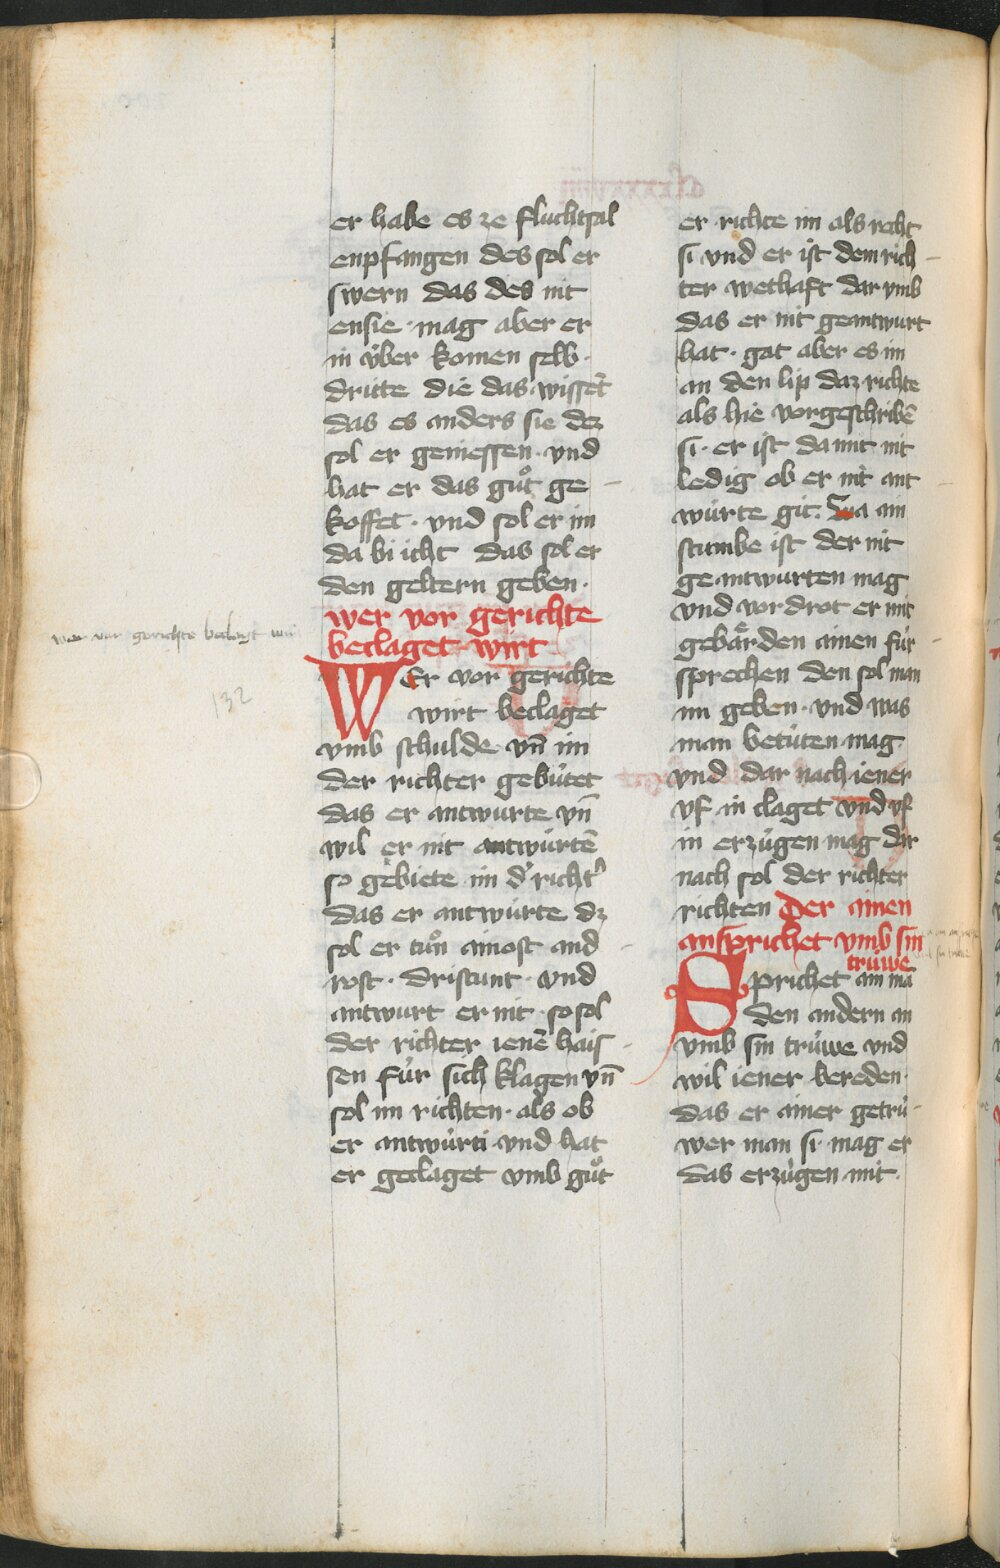 er habe es ze fluchtsal
enpfangen des sol er
swern das des nit
ensie · mag aber er
in v́ber komen selb ·
dritte die das · wisset̄
das es anders sie dez
sol er geniessen · vnd
hat er das gůt ge
koffet · vnd sol er im
da bi icht das sol er
den geltern geben ·
wer vor gerichte
beclaget wirt
WEr vor gerichte
wirt beclaget
vmb schulde vn̄ im
der richter gebútet
das er antwurte vn̄
wil er nit antwúrtē
so gebiete im d' richt'
das er antwúrte dz
sol er tůn ainost and
rost · dristunt · vnd
antwurt er nit · so sol
der richter ienē hais
sen fúr sich klagen vn̄
sol im richten · als ob
er antwúrti · vnd hat
er geclaget vmb gůt
er richte im als recht
si · vnd er ist dem rich
ter wethaft dar vmb
das er nit geantwurt
hat · gat aber es im
an den lip daz richte
als hie vorgeschribē
si · er ist da mit nit
ledig ob er nit ant
wúrte git Swa ain
stumbe ist der nit
ge antwurten mag
vnd vordrot er mit
gebärden ainen fúr
sprechen den sol man
im geben · vnd was
man betúten mag
vnd dar nach iener
vf in claget vnd vf
in erzúgen mag dar
nach sol der richter
richten Der ainen
ansprichet vmb sin
trúwe
Sprichet ain mā
den andern an
vmb sin trúwe vnd
wil iener bereden
das er ainer getrú
wer man si · mag er
das erzúgen mit ·
wer vor gerichte beclagt wirt
132